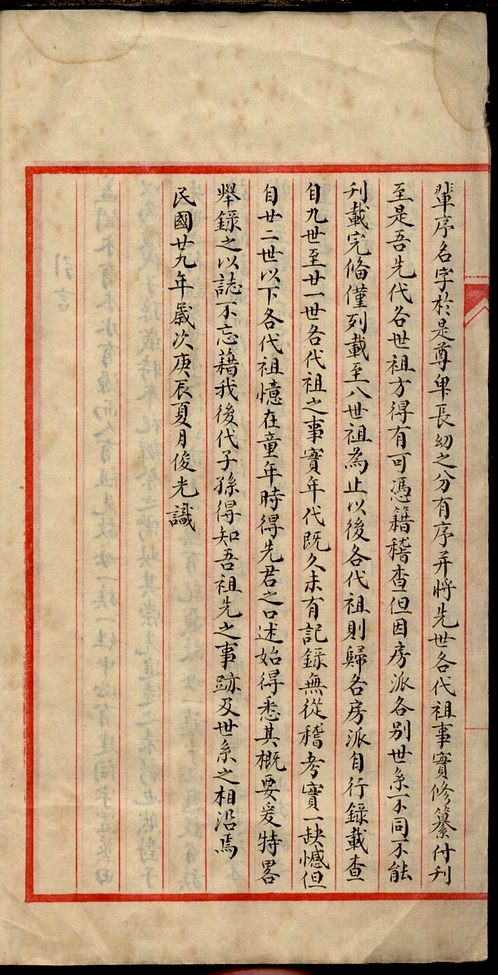 輩序名字於是尊卑長幼之分有序并將先世各代祖事實修纂付刋
至是吾先代各世祖方得有可憑籍稽查但因房派各别世系不同不能
刋載完俻僅列載至八世祖為止以後各代祖則歸各房派自行錄載查
自九世至廿一世各代祖之事實年代既久未有記錄無從稽考實一缺憾但
自廿二世以下各代祖憶在童年時得先君之口述始得悉其概要爰特畧
舉錄之以誌不忘藉我後代子孫得知吾祖先之事跡及世系之相沿焉
民國廿九年歲次庚辰夏月俊光識
引言